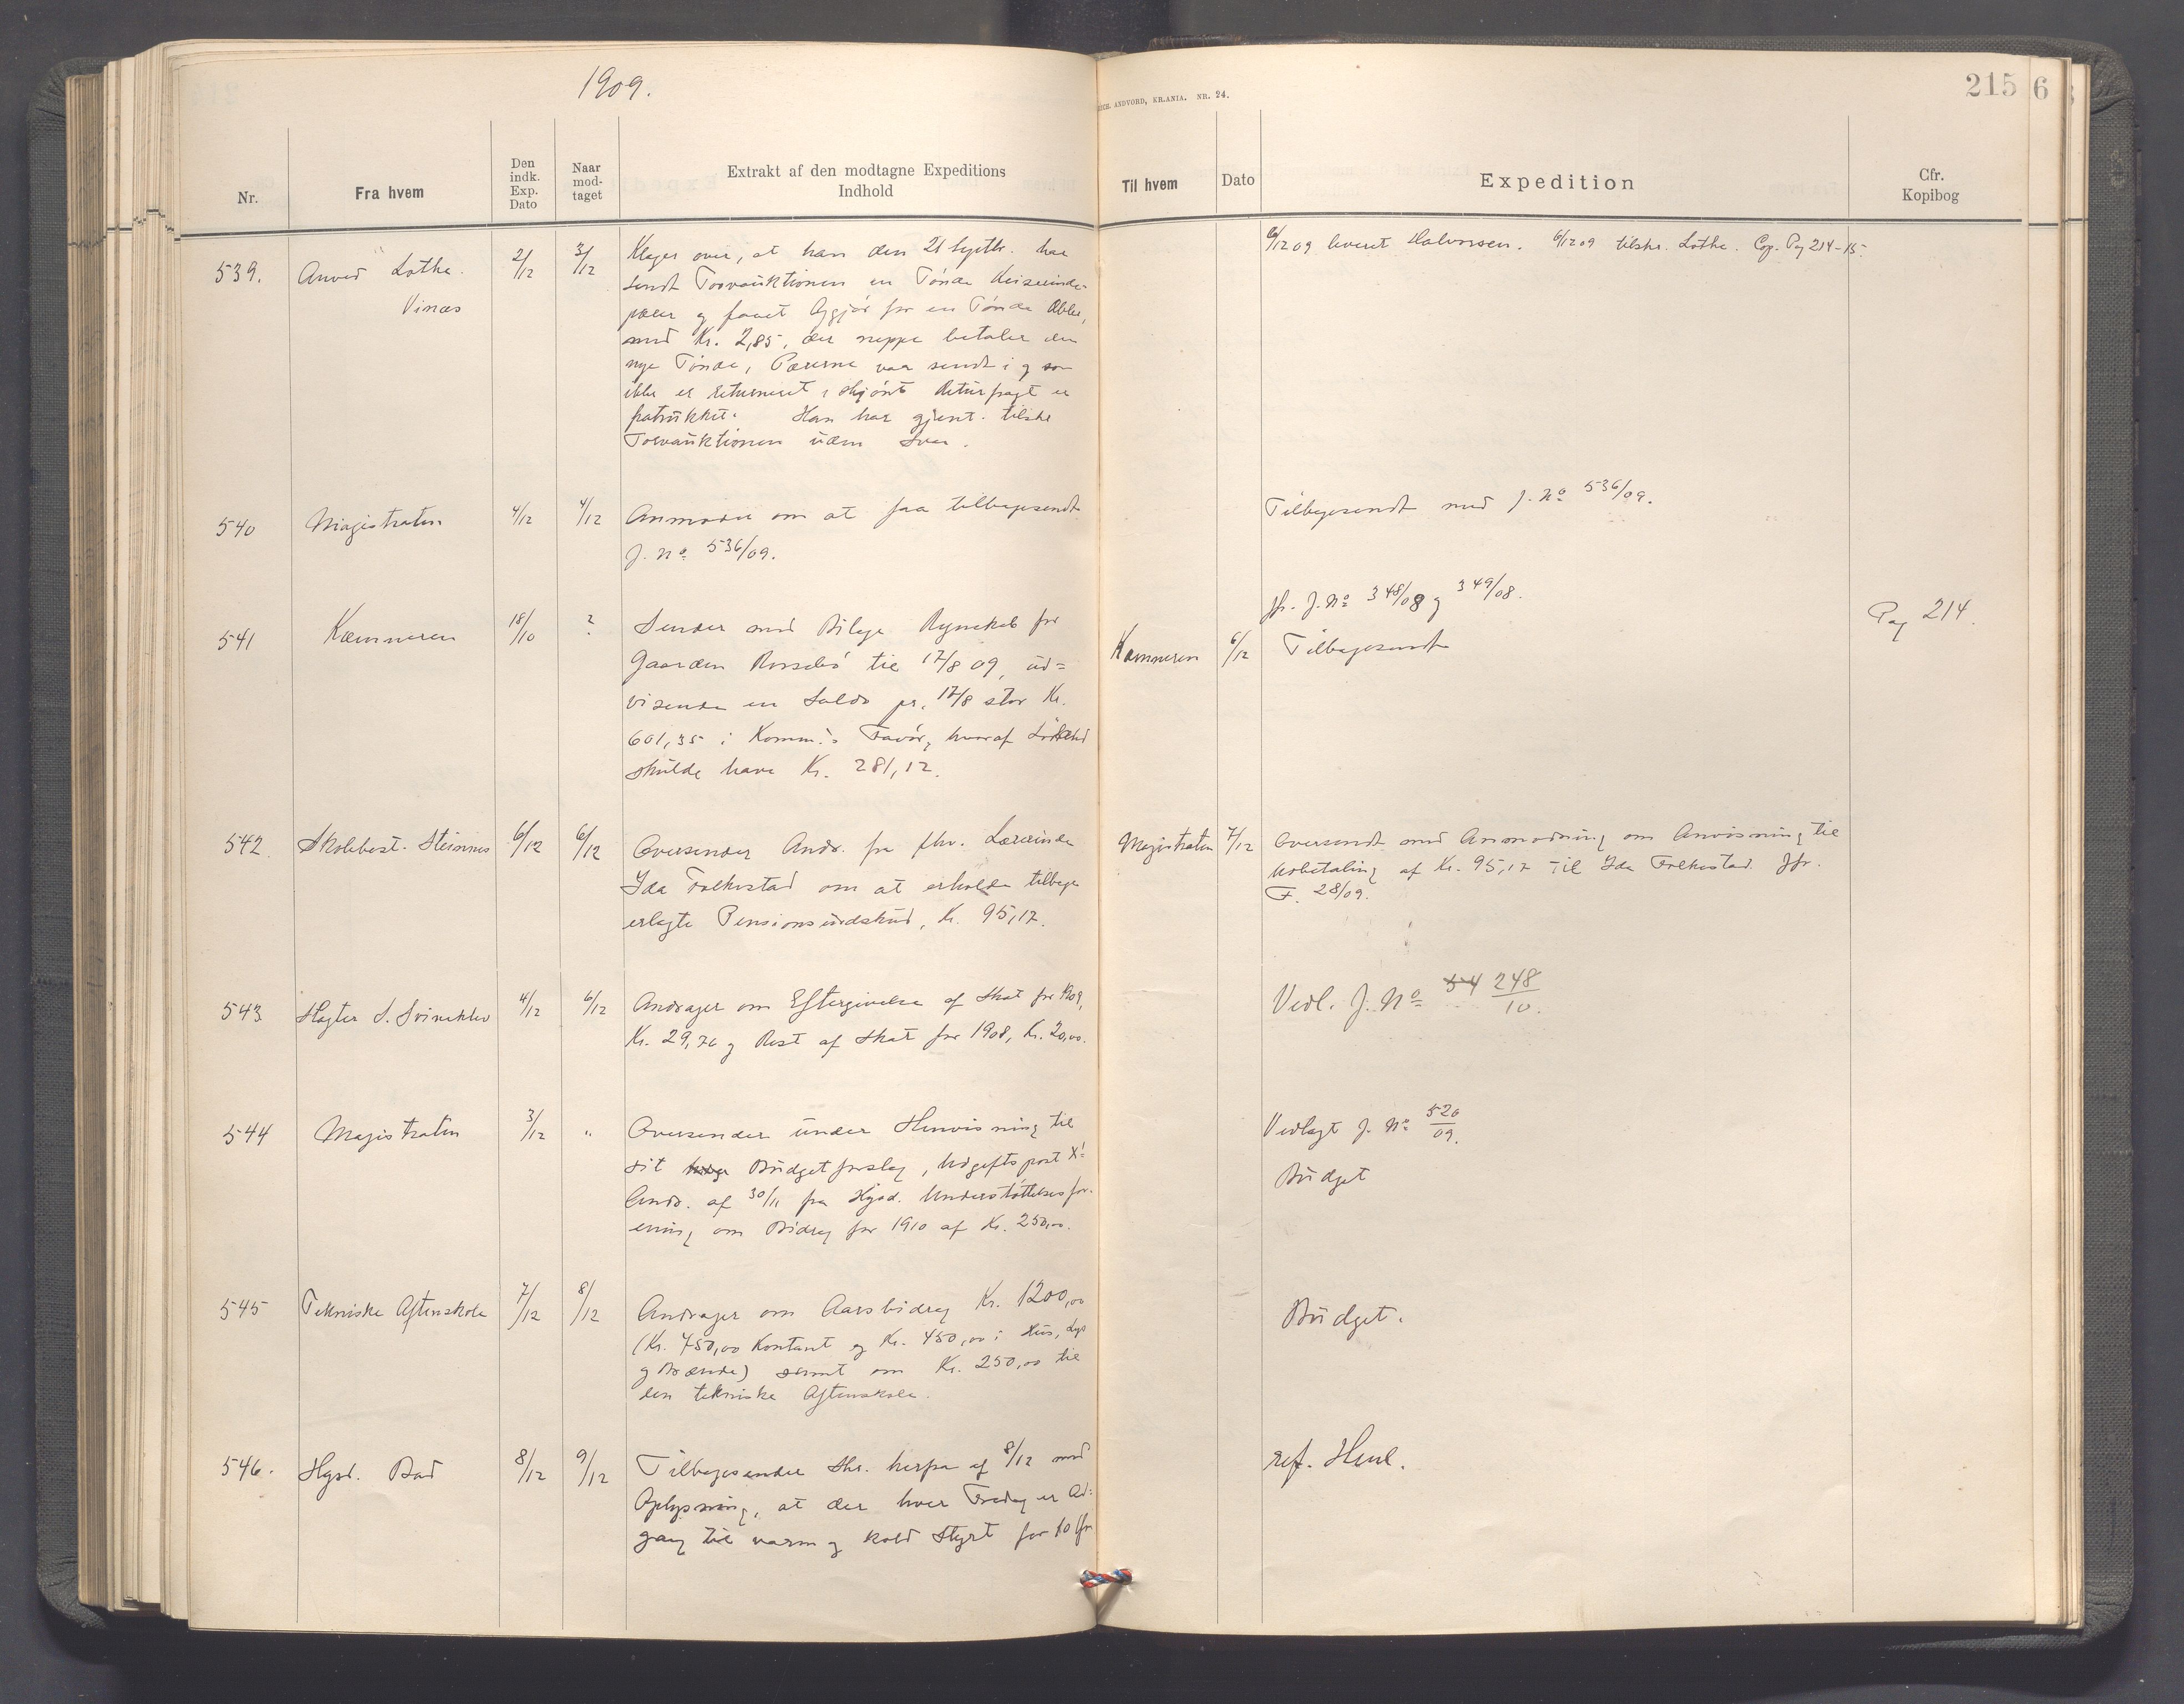 1909.
RICH. ANDVORD, KR.ANIA. NR. 24.
215
6
Nr.
Fra hvem
Den indk. Exp. Dato
Naar mod-taget
Extrakt af den modtagne Expeditions Indhold
Til hvem
Dato
Expedition
Cfr. Kopibog
539.
Anved Lothe.
Vinæs
2/12
3/12
Klager over, at han den 21 Septbr. har
sendt Torvauktionen en Tønde Keiserinde-
pærer og faaet Opgjør for en Tønde Æbler,
med Kr. 2,85, der neppe betaler den
nye Tønde, Pærerne var sendt i og som
ikke er returneret, skjønt Returfragt er
fratrukket. Han har gjent. tilskr.
Torvauktionen uden Svar.
6/12 09 Halvorsen. 6/12 09 tilskr. Lothe. Cop. Pag 214-15.
540
Magistraten
4/12
4/12
Anmoder om at faa tilbagesendt
J. No 536/09.
Tilbagesendt med J. No 536/09.
541
Kæmneren
18/10
?
Sender med Bilage Regnskab for
Gaarden til 17/8 09, ud=
visende en Saldo pr. 17/8 stor Kr.
601,35 i Komm.s Favør, hvoraf
skulde have Kr. 281,12.
Jfr. J. No 348/08 og 349/08.
Kæmneren
6/12
Tilbagesendt
Pag 214.
542.
Skolebest. Steinnes
6/12
6/12
Oversender Andr. fra fhv. Lærerinde
Ida Folkestad om at erholde tilbage
erlagte Pensionsindskud, Kr. 95,17.
Magistraten
7/12
Oversendt med Anmodning om Anvisning til
Udbetaling af Kr. 95,17 til Ida Folkestad. Jfr.
F. 28/09.
543
Slagter S. Svineklev
4/12
6/12
Andrager om Eftergivelse af Skat for 1909,
Kr. 29,70 og Rest af Skat for 1908, Kr. 20,00.
Vedl. J. No 54 248/10.
544
Magistraten
3/12
"
Oversender under Henvisning til
sit Budgetforslag, Udgiftspost X!
Andr. af 30/11 fra Hgsd. Understøttelsesfor-
ening om Bidrag for 1910 af Kr. 250,00.
Vedlagt J. No 520/09.
Budget
545
Tekniske Aftenskole
7/12
8/12
Andrager om Aarsbidrag Kr. 1200,00
(Kr. 750,00 Kontant og Kr. 450,00 i Hus, Lys
og Brænde) samt om Kr. 250,00 til
den tekniske Aftenskole.
Budget.
546.
Hgsd. Bad
8/12
9/12
Tilbagesender Skr. herfra af 8/12 med
Oplysning, at der hver Fredag er Ad=
gang til varm og kold Styrt for 10 Øre
ref. Henl.